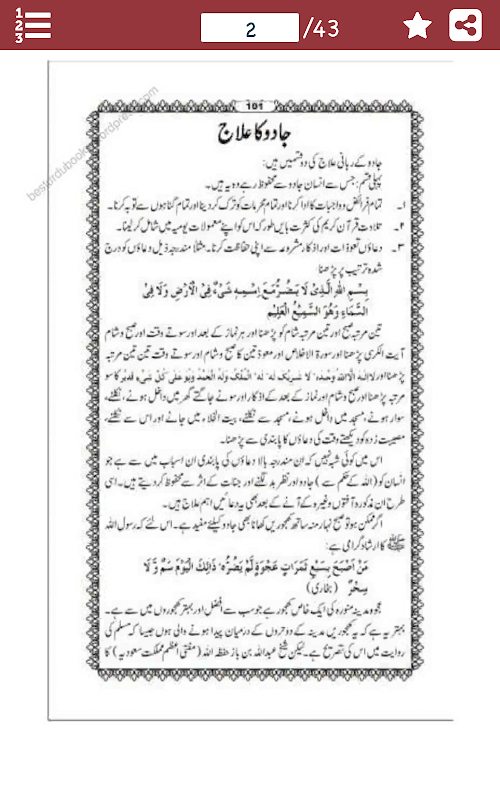 1
2
3
2 /43
bestordubooks.wordpress.com
101
جادو کا علاج
جادو کے ربانی علاج کی دو قسمیں ہیں:
پہلی قسم: جس سے انسان جادو سے محفوظ رہے وہ یہ ہیں۔
۱۔ تمام فرائض و واجبات کا ادا کرنا اور تمام محرمات کو ترک کر دینا اور تمام گناہوں سے توبہ کرنا۔
۲۔ تلاوت قرآن کریم کی کثرت بایں طور کہ اس کو اپنے معمولات یومیہ میں شامل کر لینا۔
۳۔ دعاؤں تعوذات اور اذکار مشروعہ سے اپنی حفاظت کرنا۔ مثلاً مندرجہ ذیل دعاؤں کو درج
شدہ ترتیب پر پڑھنا
بِسْمِ اللّٰهِ الَّذِیْ لَا یَضُرُّ مَعَ اِسْمِهٖ شَیْءٌ فِیْ الْاَرْضِ وَلَا فِیْ
السَّمَآءِ وَهُوَ السَّمِیْعُ الْعَلِیْمِ
تین مرتبہ صبح اور تین مرتبہ شام کو پڑھنا اور ہر نماز کے بعد اور سوتے وقت اور صبح و شام
آیت الکرسی پڑھنا اور سورۃ الاخلاص اور معوذتین کا صبح و شام اور سوتے وقت تین تین مرتبہ
پڑھنا اور لا الٰہ الا اللہ وحدہ لا شریک لہ لہ الملک ولہ الحمد وہو علی کل شیء قدیر کا سو
مرتبہ پڑھنا اور صبح و شام اور نماز کے بعد کے اذکار اور سونے جاگنے گھر میں داخل ہونے، نکلنے،
سوار ہونے، مسجد میں داخل ہونے، مسجد سے نکلنے، بیت الخلاء میں جانے اور اس سے نکلنے،
مصیبت زدہ کو دیکھتے وقت کی دعاؤں کا پابندی سے پڑھنا۔
اس میں کوئی شبہ نہیں کہ ان مندرجہ بالا دعاؤں کی پابندی ان اسباب میں سے ہے جو
انسان کو (اللہ کے حکم سے) جادو اور نظر بد لگنے اور جنات کے اثر سے محفوظ کر دیتے ہیں۔ اسی
طرح ان مذکورہ آفتوں وغیرہ کے آنے کے بعد بھی یہ دعائیں اہم علاج ہیں۔
اگر ممکن ہو تو صبح نہار منہ سات کھجوریں کھانا بھی جادو کیلئے مفید ہے۔ اس لئے کہ رسول اللہ
ﷺ کا ارشاد گرامی ہے:
مَنْ اَصْبَحَ بِسَبْعِ تَمَرَاتٍ عَجْوَةٍ لَّمْ یَضُرُّهُ ذَالِكَ الْیَوْمَ سَمٌّ وَّ لَا
سِحْرٌ (بخاری)
عجوہ مدینہ منورہ کی ایک خاص کھجور ہے جو سب سے افضل اور بہتر کھجوروں میں سے ہے۔
بہتر یہ ہے کہ یہ کھجوریں مدینہ کے دو حروں کے درمیان پیدا ہونے والی ہوں جیسا کہ مسلم کی
روایت میں اس کی تصریح ہے۔ لیکن شیخ عبداللہ بن باز حفظہ اللہ (مفتی اعظم مملکت سعودیہ) کا